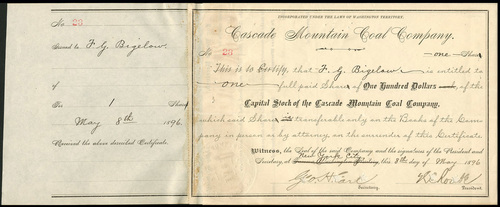 No. 29
Issued to F. G. Bigelow
of
For 1 Share
May 8th 1896.
Received the above described Certificate.
INCORPORATED UNDER THE LAWS OF WASHINGTON TERRITORY.
Cascade Mountain Coal Company.
No. 29 one Share
This is to Certify, that F. G. Bigelow is entitled to
one full paid Share of One Hundred Dollars of the
Capital Stock of the Cascade Mountain Coal Company,
which said Share is transferable only on the Books of the Com-
pany in person or by attorney, on the surrender of this Certificate
Witness, the Seal of the said Company and the signatures of the President and
Secretary, at New York City this 8th day of May 1896
Geo. H. Earl
Secretary. President.